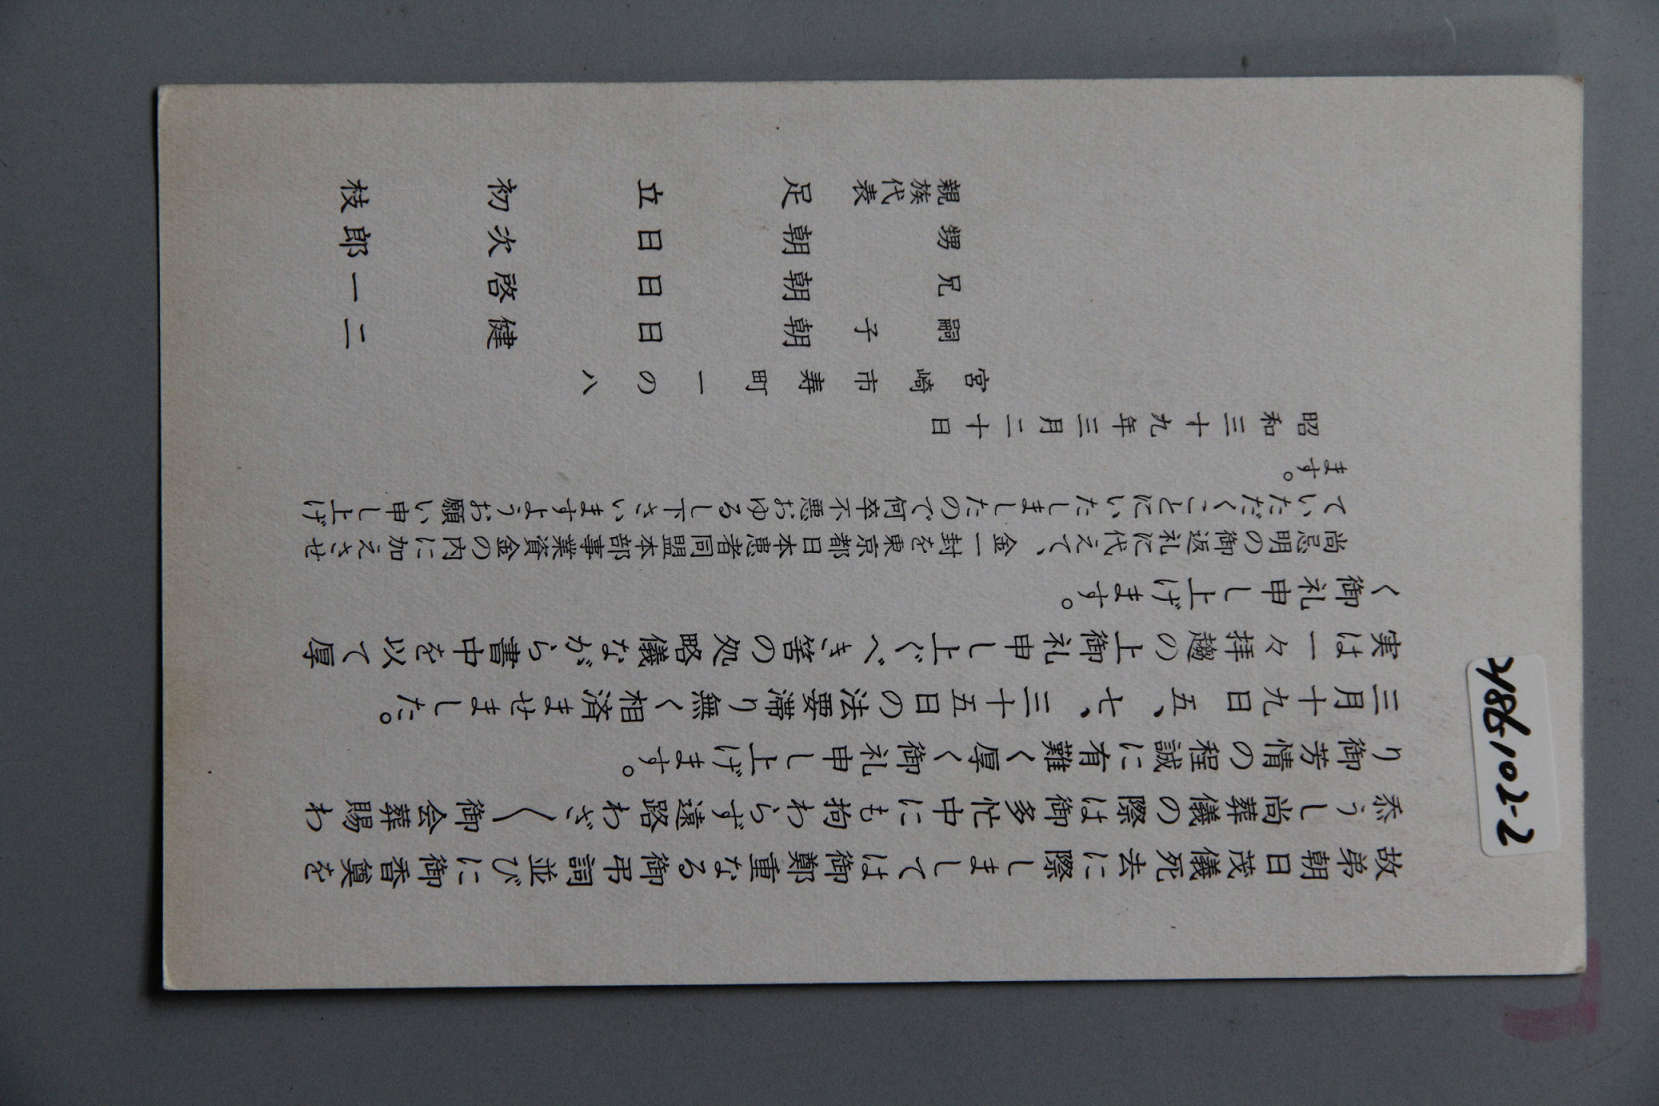 故弟朝日茂儀死去に際しましては御鄭重なる御弔詞並びに御香奠を
忝うし尚葬儀の際は御多忙中にも拘わらず遠路わざ〱御会葬賜わ
り御芳情の程誠に有難く厚く御礼申し上げます。
三月十九日五、七、三十五日の法要滞り無く相済ませました。
実は一々拝趨の上御礼申し上ぐべき筈の処略儀ながら書中を以て厚
く御礼申し上げます。
尚忌明の御返礼に代えて、金一封を東京都日本患者同盟本部事業資金の内に加えさせ
ていただくことにいたしましたので何卒不悪おゆるし下さいますようお願い申し上げ
ます。
昭和三十九年三月二十日
宮崎市寿町一の八
嗣子 朝日健二
兄 朝日啓一
甥 朝日次郎
親族代表 足立初枝
486,102-2